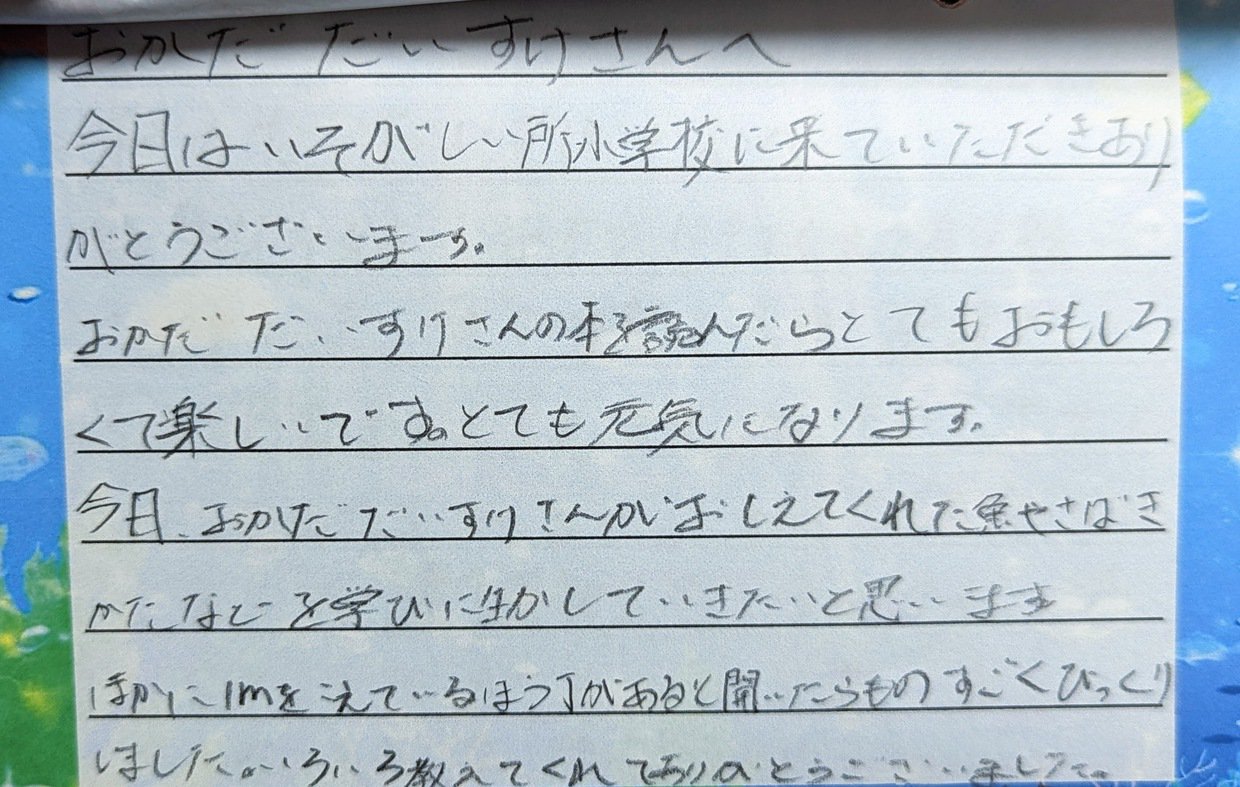 おかだ だいすけさんへ
今日は いそがしい所小学校に来ていただきあり
がとうございます。
おかだ だいすけさんの本を読んだらとてもおもしろ
くて楽しいです。とても元気になります。
今日、おかだ だいすけさんがおしえてくれた魚やさばき
かたなどを学びに生かしていきたいと思います
ほかに1mをこえているほう丁があると開いたらものすごくびっくり
しました。いろいろ教えてくれてありがとうございました。